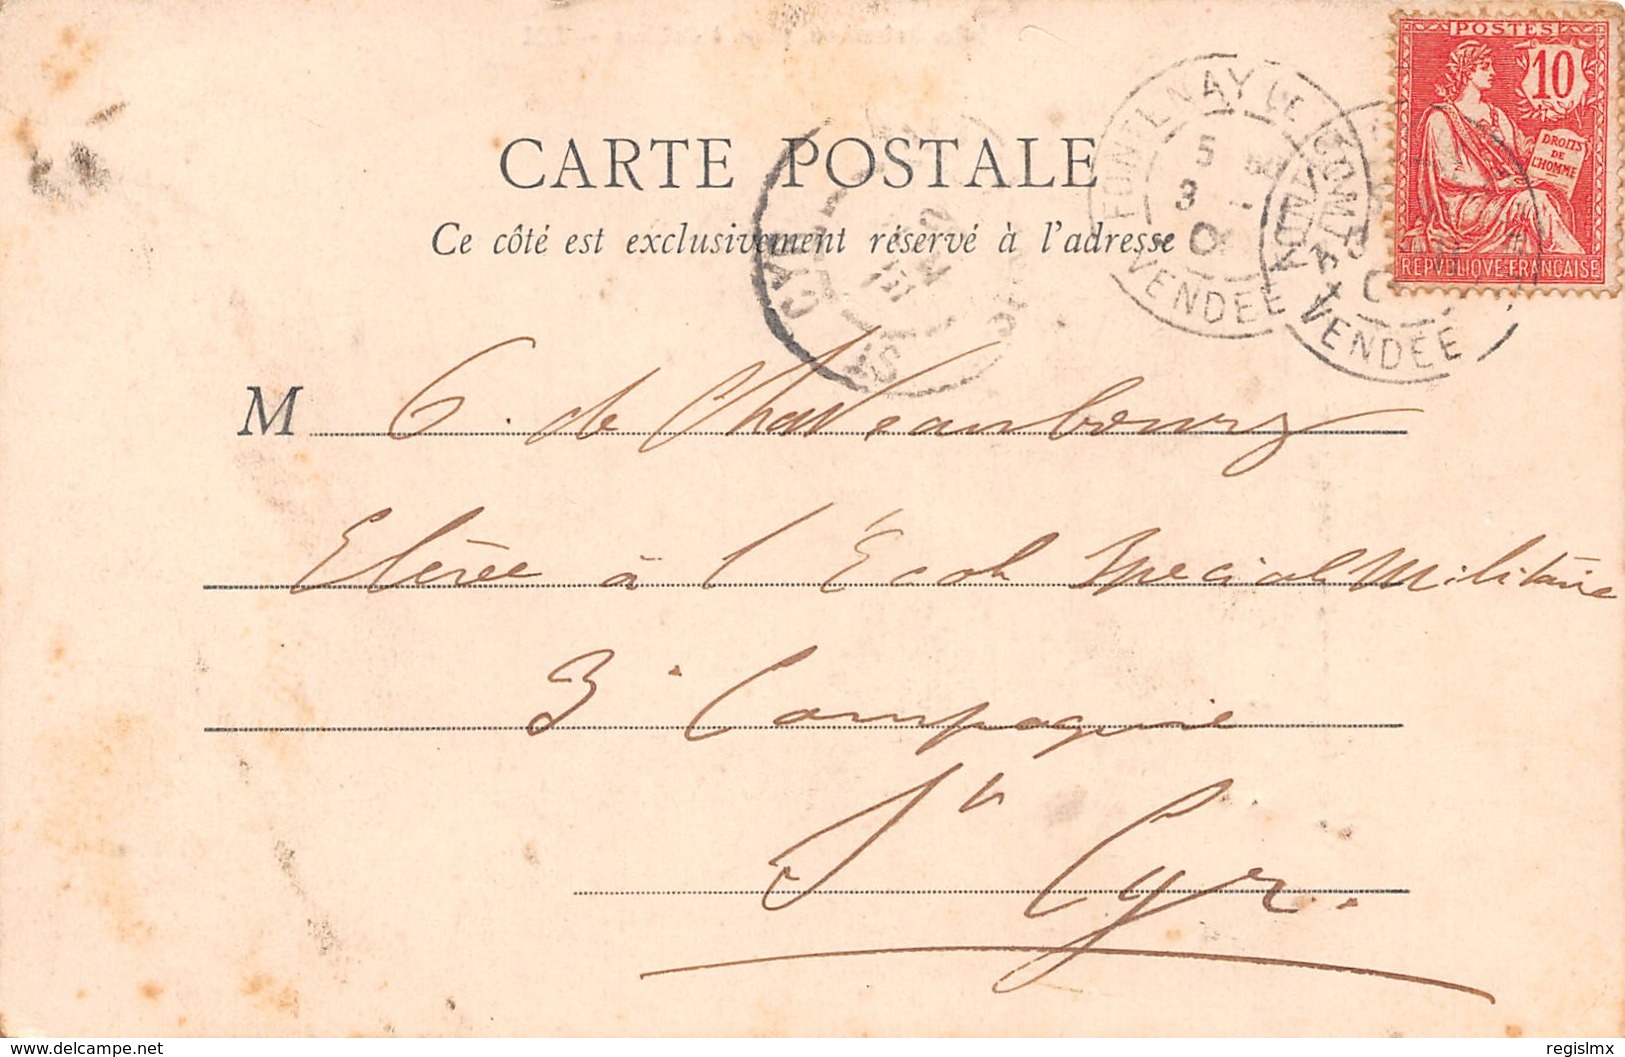 CARTE POSTALE
Ce côté est exclusivement réservé à l'adresse
POSTES
10
DROITS
DE
L'HOMME
REPVBLIQVE FRANCAISE
FONTENAY LE COMTE
5
3
VENDÉE
VENDÉE
CYR
M G. de Chateaubourg
Elève à l'École Special Militaire
3e Compagnie
St Cyr.
delcampe.net
regislmx